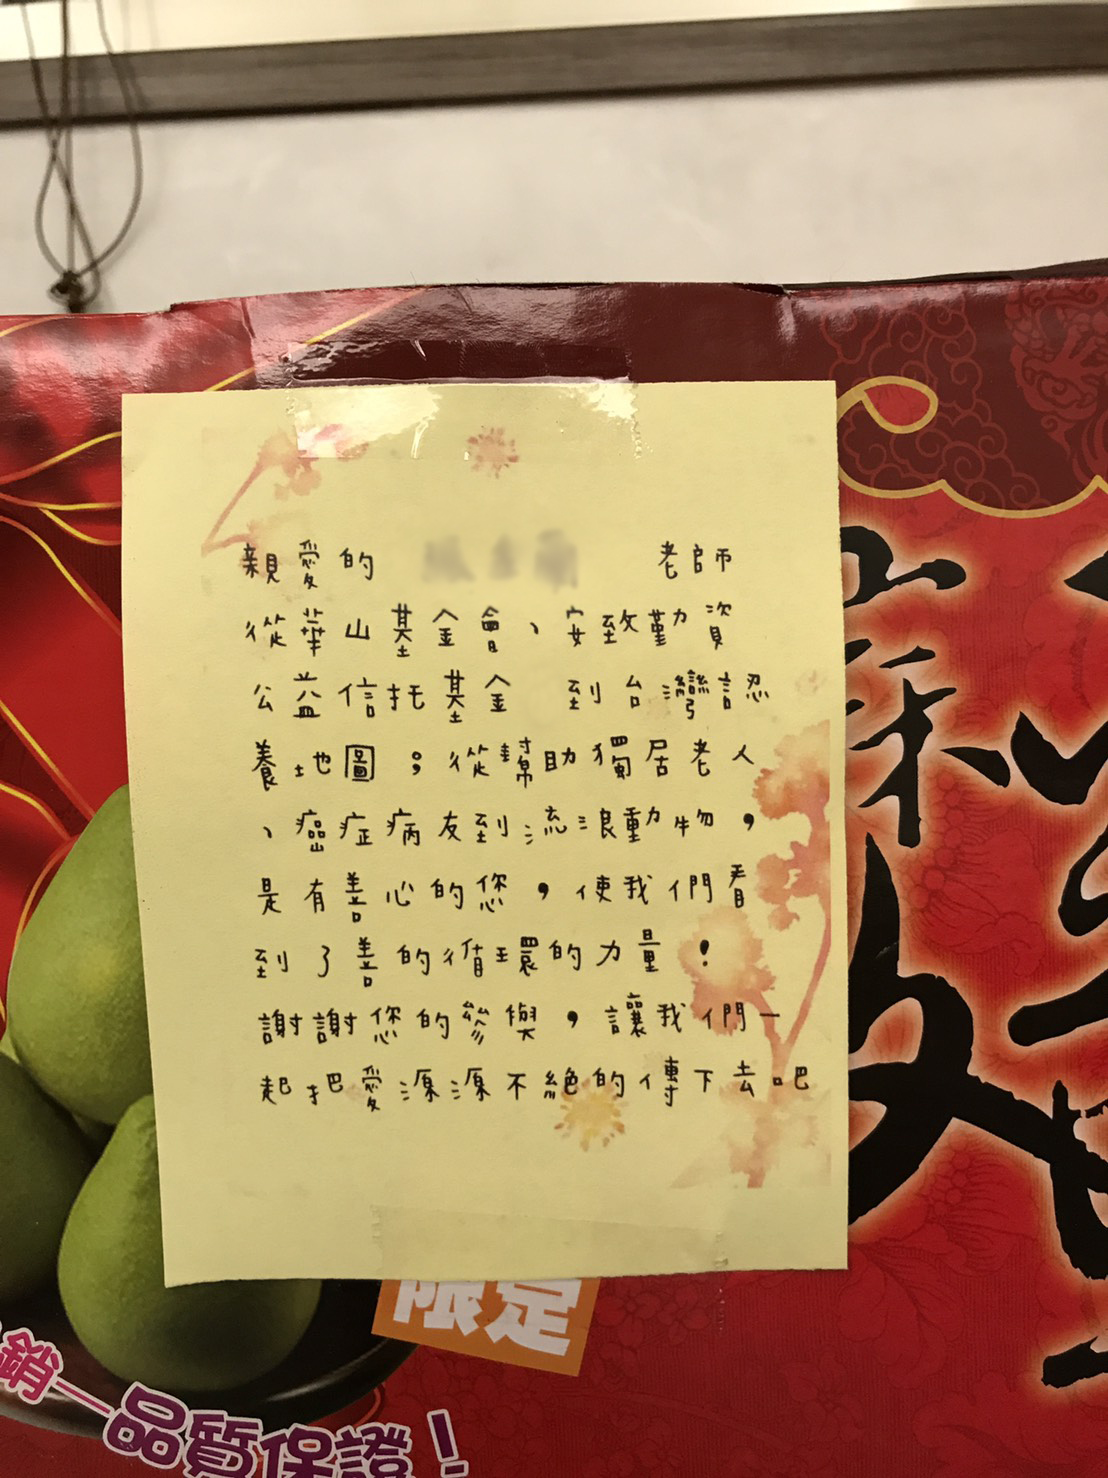 親愛的 老師
從華山基金會、安致勤資
公益信托基金 到台灣認
養地圖；從幫助獨居老人
、癌症病友到流浪動物，
是有善心的您，使我們看
到了善的循環的力量！
謝謝您的參與，讓我們一
起把愛源源不絕的傳下去吧
限定
銷一品質保證！